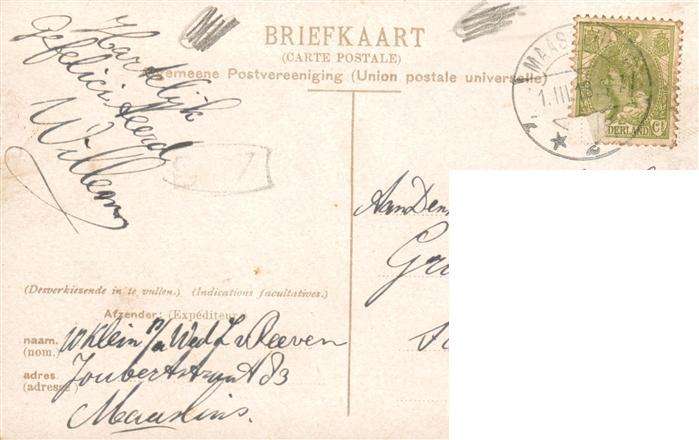 Hartelijk
gefeliciteerd
Willem
BRIEFKAART
(CARTE POSTALE)
Algemeene Postvereeniging (Union postale universelle)
MAAS
1.III.13
2
DERLAND
Ct
Aan Den
Gr
(Desverkiezende in te vullen.) (Indications facultatives.)
Afzender: (Expéditeur)
naam. W Klein p/a Wed L v Leeven
(nom.)
adres. Joubertstraat 83
(adresse)
Maassluis.